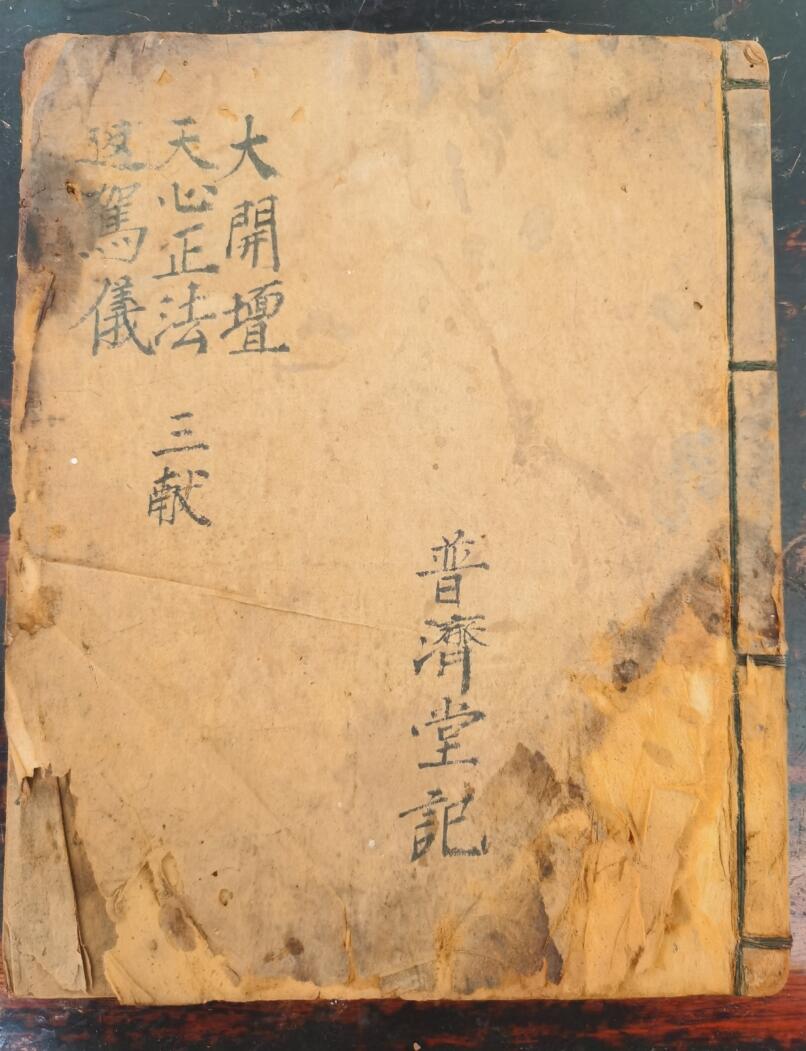 大開壇
天心正法
駕儀
三献
普濟堂記